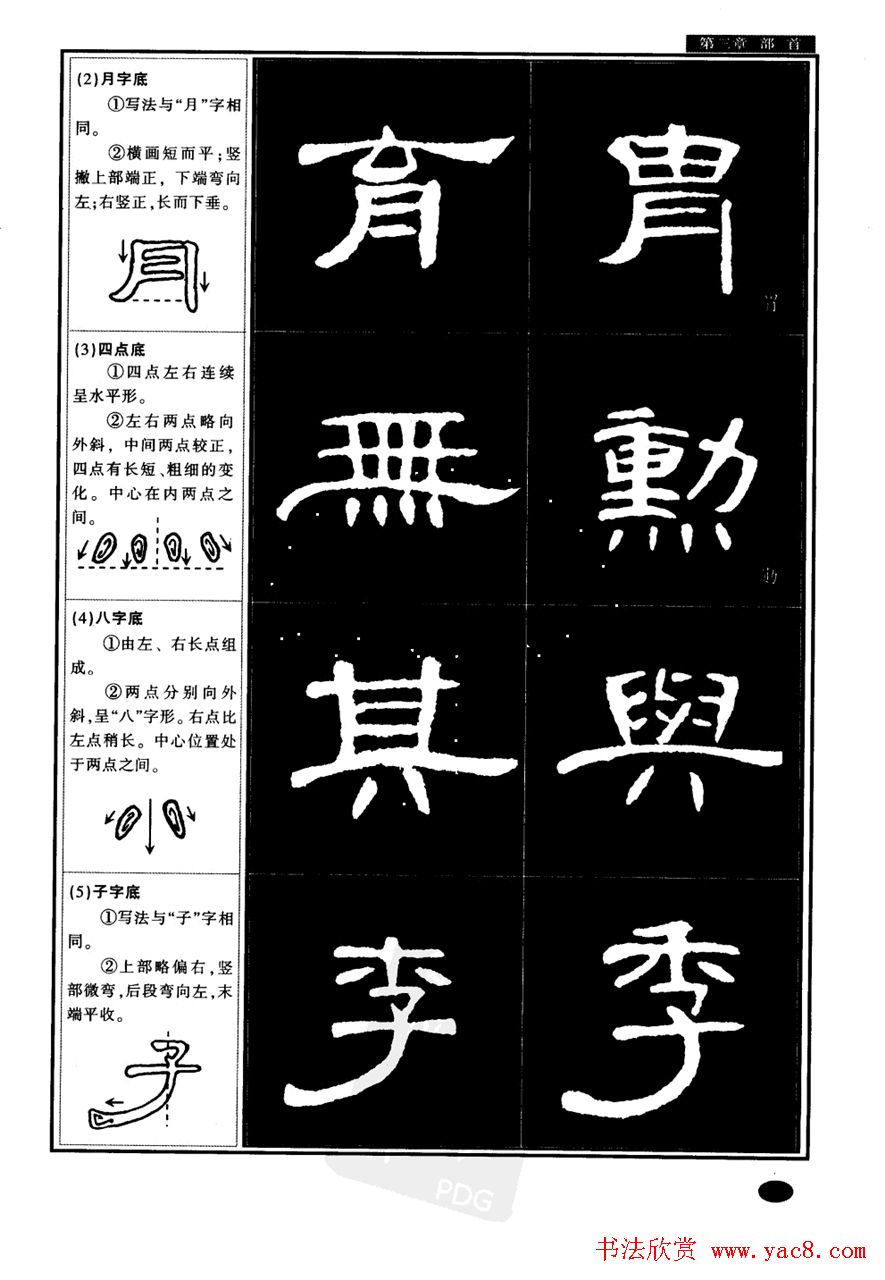 第三章 部 首
(2)月字底
①写法与“月”字相
同。
②横画短而平；竖
撇上部端正，下端弯向
左；右竖正，长而下垂。
育 胄
(3)四点底
①四点左右连续
呈水平形。
②左右两点略向
外斜，中间两点较正，
四点有长短、粗细的变
化。中心在内两点之
间。
無 勲
(4)八字底
①由左、右长点组
成。
②两点分别向外
斜，呈“八”字形。右点比
左点稍长。中心位置处
于两点之间。
其 與
(5)子字底
①写法与“子”字相
同。
②上部略偏右，竖
部微弯，后段弯向左，末
端平收。
李 季
PDG
书法欣赏 www.yac8.com